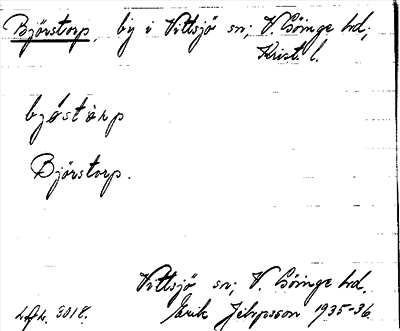 Björstorp, by i Vittsjö sn; V. Göinge hd,
Krist. l.
byöstȧrp
Björstorp.
Vittsjö sn; V. Göinge hd.
Erik Jeppsson 1935-36.